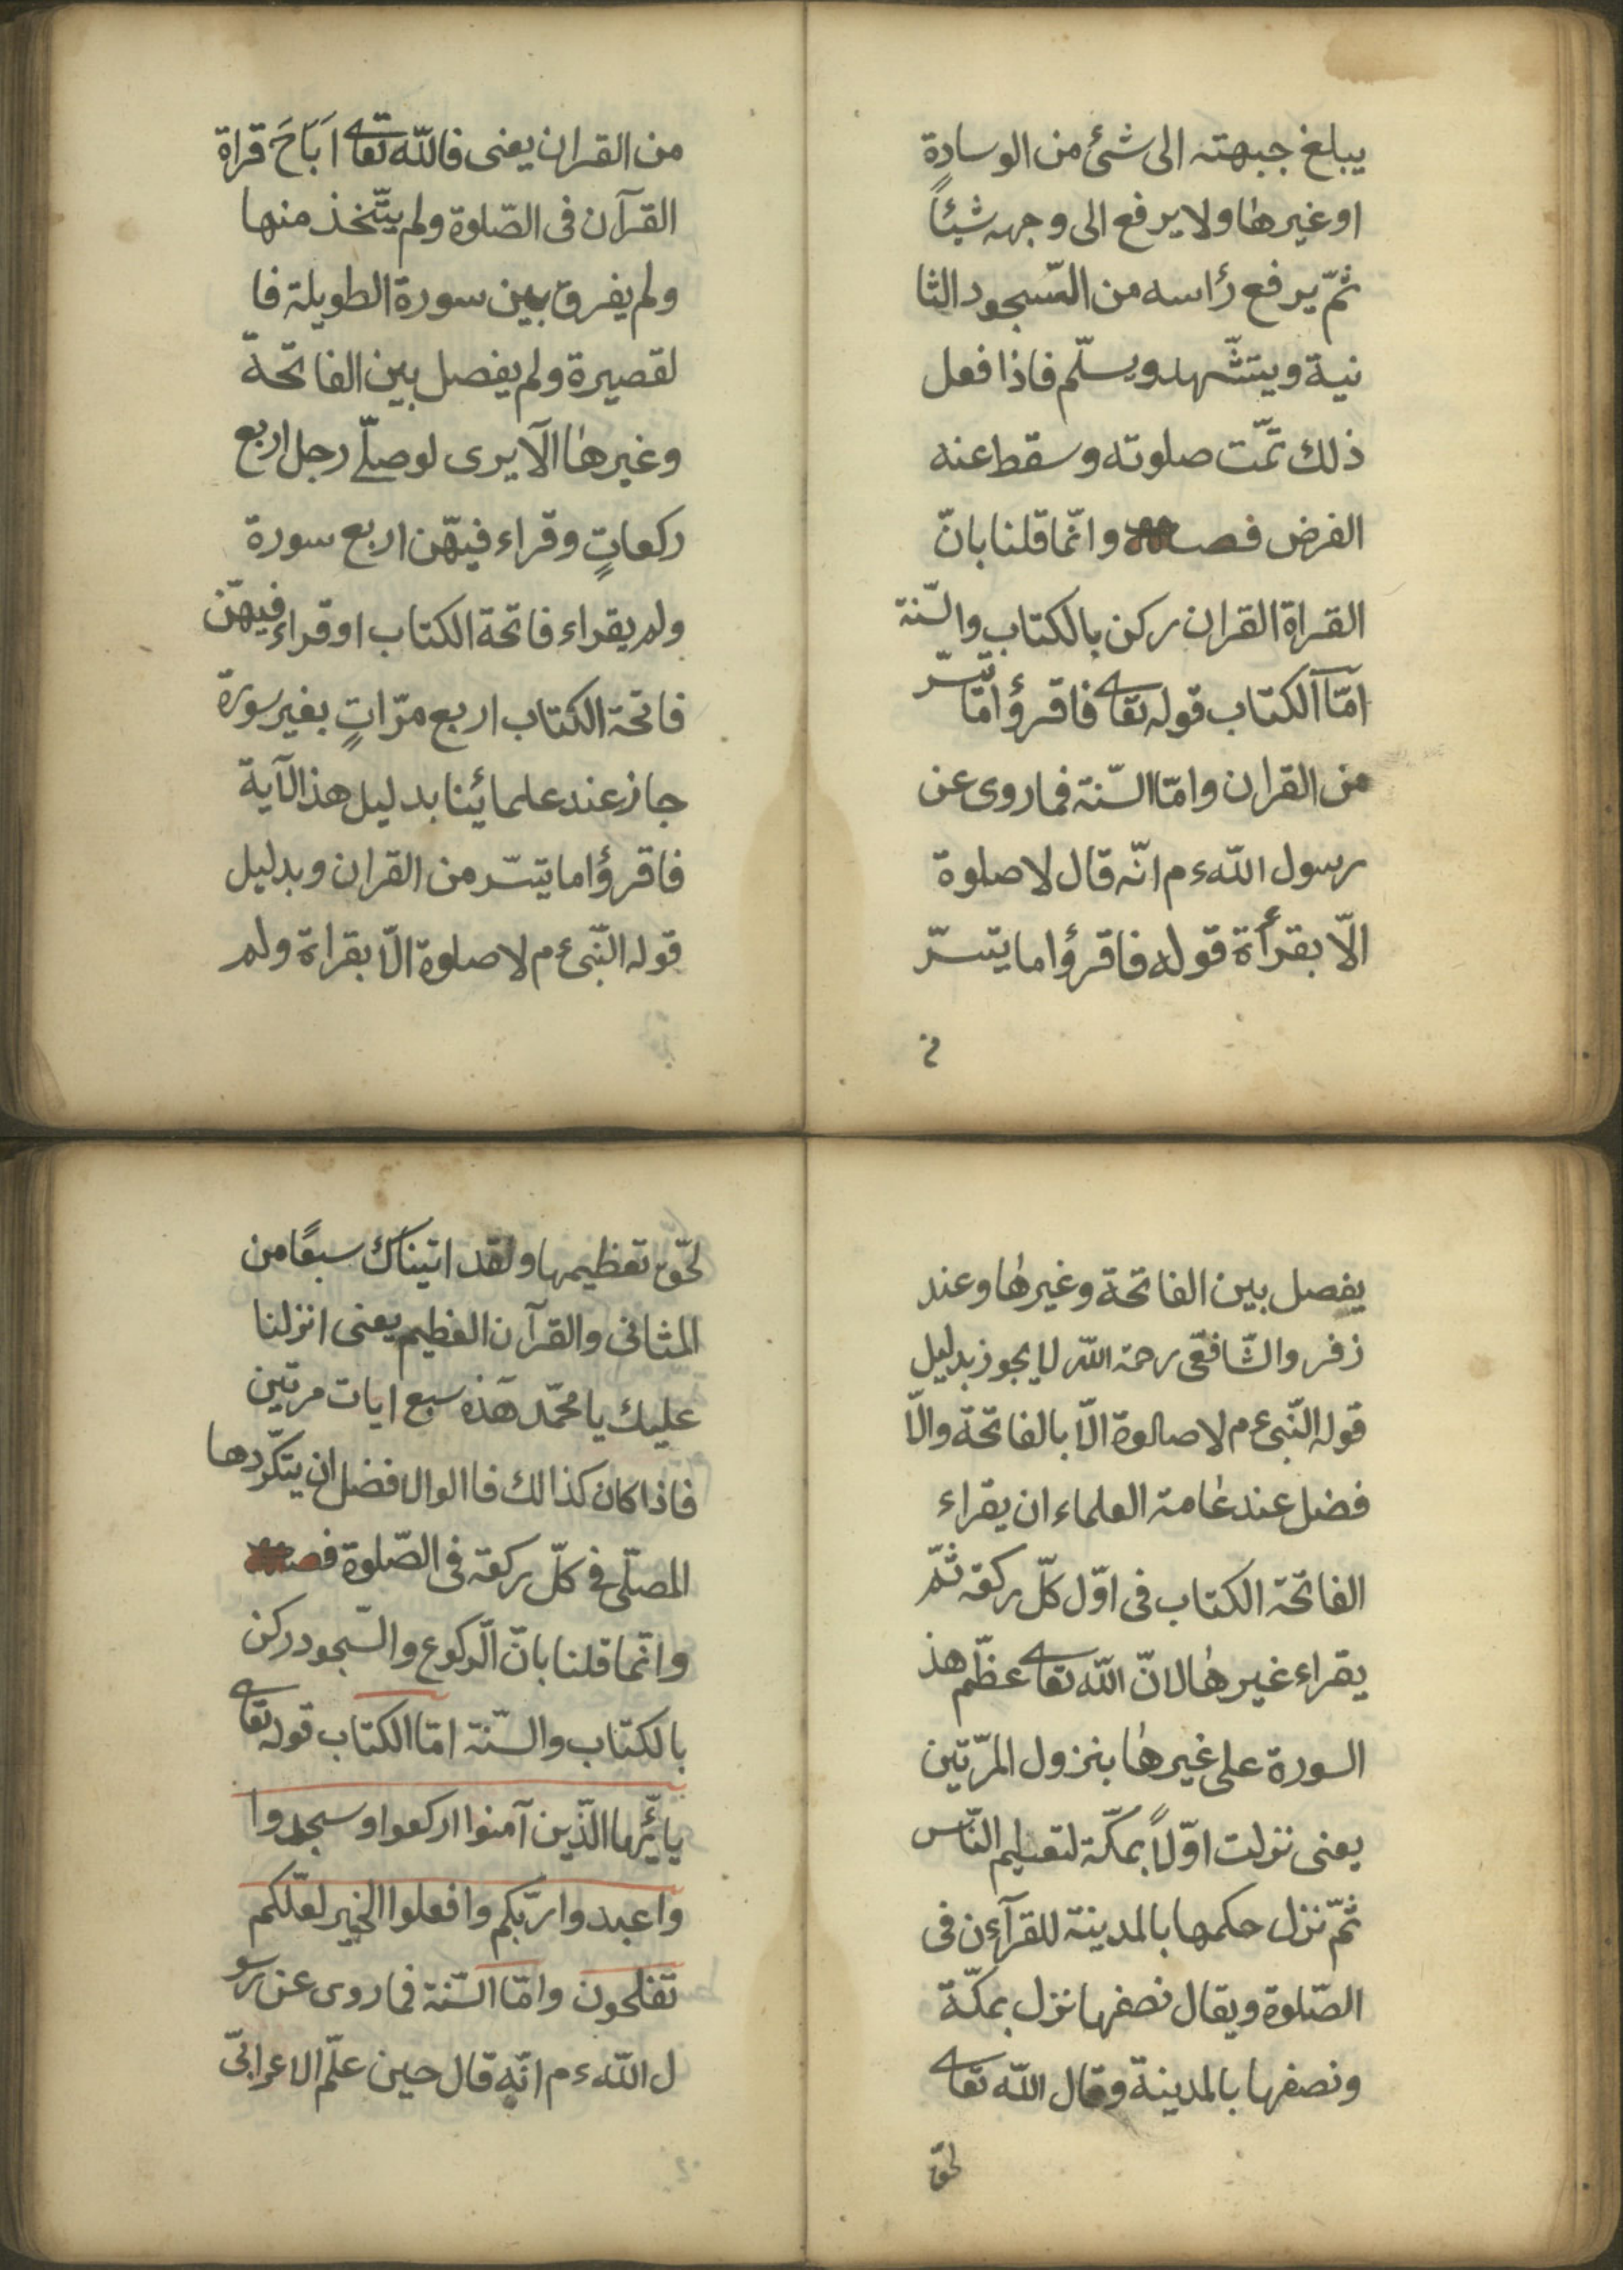 يبلغ جبهته الى شئ من الوسادة
او غيرها ولا يرفع الى وجهه شيئاً
ثمّ يرفع رأسه من السّجود الثا
نية ويتشّهد ويسلّم فاذا فعل
ذلك تمّت صلوته وسقط عنه
الفرض فصـ وانّما قلنا بانّ
القراة القران ركن بالكتاب والسّنة
امّا آلكتاب قوله تعا فاقرؤا ما تيسّر
من القران وامّا السّنة فما روى عن
رسول اللّه ءم انّه قال لا صلوة
الّا بقرأة قوله فاقرؤا ما يتسرّ
من
من القران يعنى فاللّه تعا اَبَاحَ قراة
القرآن فى الصّلوة ولم يتّخذ منها
ولم يفرق بين سورة الطويلة فا
لقصيرة ولم يفصل بين الفاتحة
وغيرها الآ يرى لو صلّے رجل اربع
ركعاتٍ وقراء فيهّن اربع سورة
ولم يقراء فاتحة الكتاب او قراء فيهّن
فاتحة الكتاب اربع مرّاتٍ بغير سورة
جاز عند علمائينا بدليل هذ الآية
فاقرؤا ما تيسّر من القران وبدليل
قوله النّبى ءم لا صلوة الّا بقراة ولم
يفصل بين الفاتحة وغيرها وعند
زفر والشّافعى رحمة اللّه لا يجوز بدليل
قوله النّبى ءم لا صالوة الّا بالفاتحة والّا
فضل عند عامة العلماء ان يقراء
الفاتحة الكتاب فى اوّل كلّ ركعة ثمّ
يقراء غيرها لانّ اللّه تعا عظّم هذ
السورة على غيرها بنزول المرّتين
يعنى نزلت اوّلاً بمكّة لتعليم النّاس
ثمّ نزل حكمها بالمدينة للقرآءن فى
الصّلوة ويقال نصفها نزل بمكّة
ونصفها بالمدينة وقال اللّه تعا
لحّق
لحّق تعظيمها ولقد اتيناك سبعًا من
المثانى والقرآن العظيم يعنى انزلنا
عليك يا محمّد هذه سبع ايات مرتين
فاذا كان كذالك فاالوالافضل ان يتكّردها
المصلّى فى كلّ ركعة فى الصّلوة فصـ
وانّما قلنا بانّ الّركوع والسّجود ركن
بالكتاب والسّنة امّا الكتاب قوله تعا
يا ئّيها الّذين آمنوا اركعوا وسجدوا
واعبدوا ربّكم وافعلوا الخير لعلّكم
تفلحون وامّا السّنة فما روى عن رسو
ل اللّه ءم انّه قال حين علّم الاعرابىّ